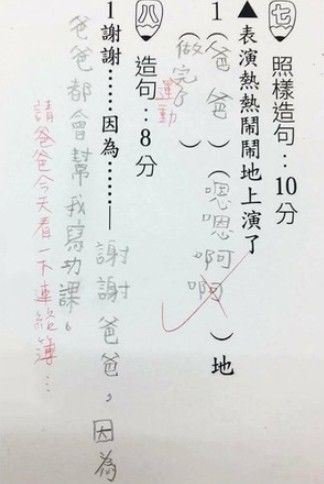 七 照樣造句：10分
▲表演熱熱鬧鬧地上演了
1（爸爸）（嗯嗯啊啊）地
（做完運動）
八 造句：8分
1謝謝……因為……— 謝謝爸爸，因為
爸爸都會幫我寫功課。
請爸爸今天看一下連絡簿…